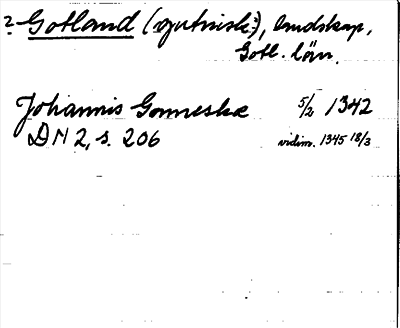 ? Gotland (gutnisk?), landskap,
Gotl. län.
Johannis Gonneskæ 5/2 1342
DN 2, s. 206 vidim. 1345 18/3